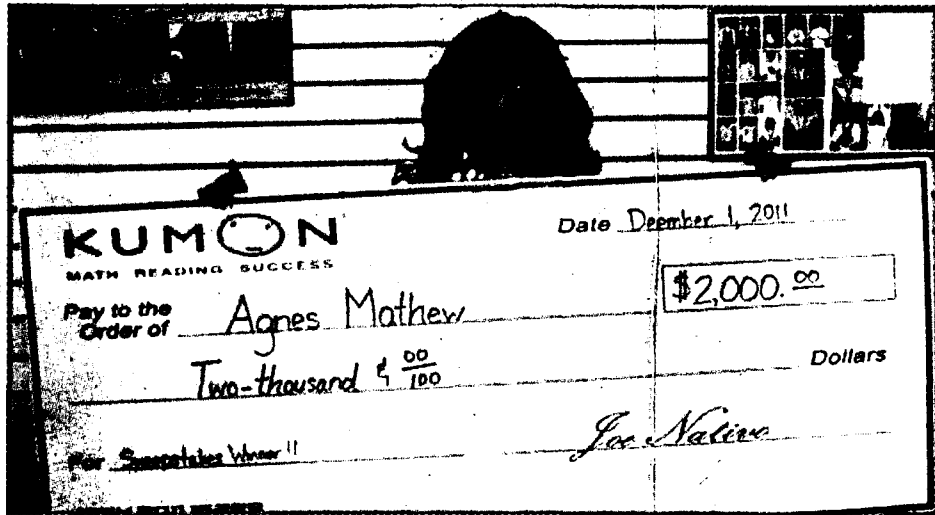 KUMON
MATH READING SUCCESS
Date Deember 1, 2011
Pay to the
Order of Agnes Mathew
$2,000.00
Two-thousand & 00/100 Dollars
For Sweepstakes Winner!!
Joe Nativo